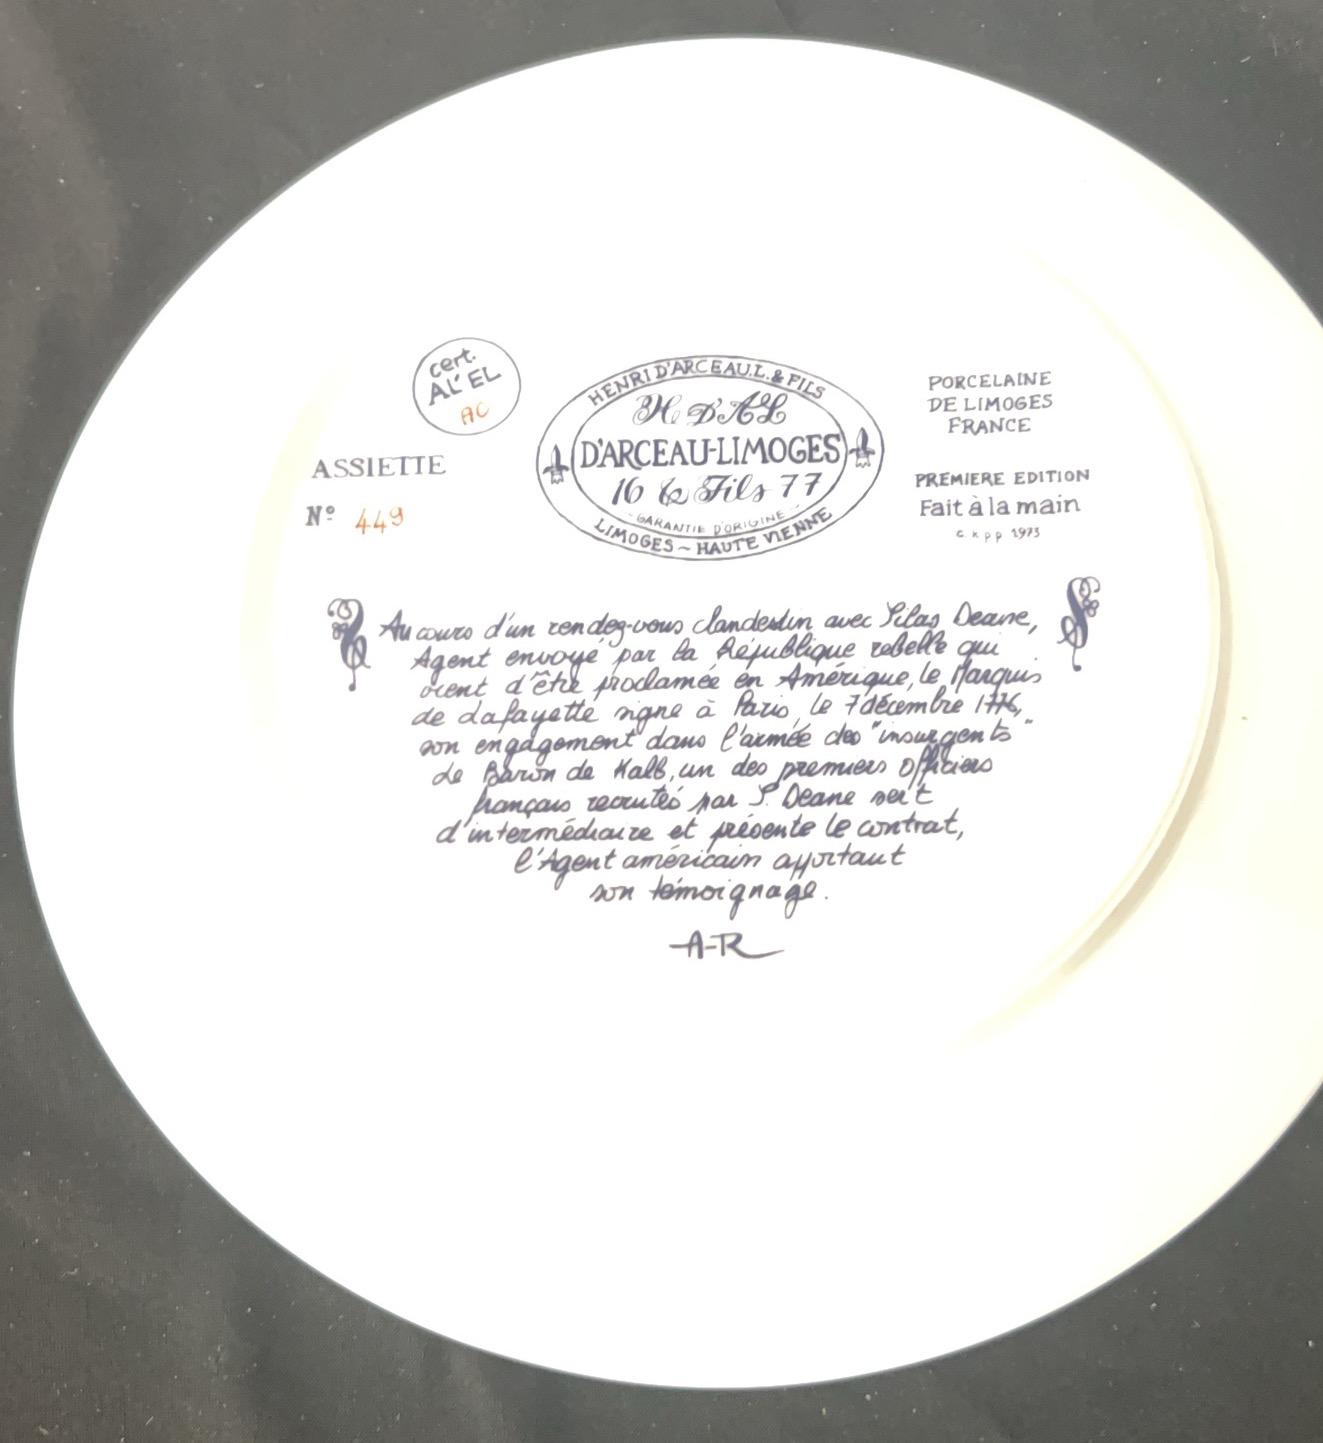 cert.
AL' EL
AC
ASSIETTE
Nº 449
HENRI D'ARCEAU.L. & FILS
H D'AL
D'ARCEAU-LIMOGES
16 & Fils 77
GARANTIE D'ORIGINE
LIMOGES ~ HAUTE VIENNE
PORCELAINE
DE LIMOGES
FRANCE
PREMIERE EDITION
Fait à la main
c.x.p.p 1973
Au cours d'un rendez-vous clandestin avec Silas Deane,
Agent envoyé par la République rebelle qui
vient d'être proclamée en Amérique, le Marquis
de Lafayette signe à Paris, le 7 décembre 1776,
son engagement dans l'armée des "insurgents"
Le Baron de Kalb, un des premiers officiers
français recrutés par S. Deane sert
d'intermédiaire et présente le contrat,
l'Agent américain apportant
son témoignage.
A-R